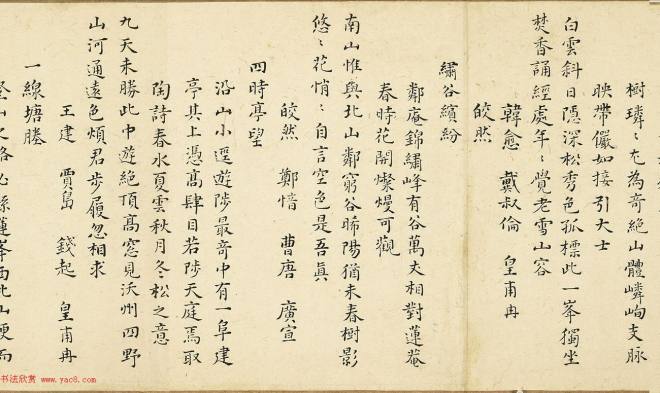 樹璘〻尤為奇絕山體嶙峋支脈
映帶儼如接引大士
白雲斜日隱深松秀色孤標此一峯獨坐
焚香誦經處年〻覺老雪山容
韓愈 戴叔倫 皇甫冉
皎然
繡谷繽紛
鄰庵錦繡峰有谷萬夫相對蓮菴
春時花開燦熳可觀
南山惟與北山鄰窮谷晞陽猶未春樹影
悠〻花悄〻自言空色是吾真
皎然 鄭愔 曹唐 廣宣
四時亭望
沿山小逕遊陟最奇中有一阜建
亭其上憑高肆目若陟天庭焉取
陶詩春水夏雲秋月冬松之意
九天未勝此中遊絕頂高窓見沃州四野
山河通遠色煩君步屧忽相求
王建 賈島 錢起 皇甫冉
一線塘塍
登山之路必繇蓮峯西北山硬而
书法欣赏 www.yac8.com